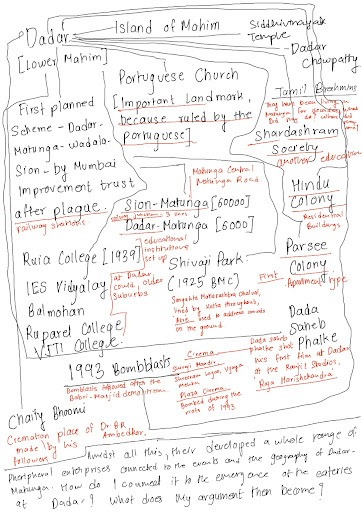 Island of Mahim
Dadar
[Lower Mahim]
Siddhivinayak
Temple
Dadar
chowpatty
First planned
Scheme - Dadar-
Matunga - Wadala-
Sion - by Mumbai
Improvement trust
after plague.
railway stations
Portuguese Church
[Important landmark,
because ruled by the
Portuguese]
Tamil Brahmins
They have been living in
Matunga for decades, what
did they eat? Where did
Shardashram
Society
another education
Matunga Central
Matunga Road
Sion-Matunga [60000]
railway stations - 3 lines
Dadar-Matunga [6000]
Hindu
Colony
Residential
Buildings
Parsee
Colony
First
Apartment type
Ruia College [1939]
educational
institutions
set up
at Dadar
could, older
suburbs
IES Vidyalay
Balmohan
Ruparel College
VJTI College
Shivaji Park
(1925 BMC)
Samyukta Maharashtra Chalval,
lined by Maths throughout,
used to address crowds
on the ground.
Dada
Saheb
Phalke
Dada Saheb
Phalke shot
his first film at Dadar
at the Ranjit Studios,
Raja Harishchandra
1993 Bombblasts
Bombblasts followed after the
Babri-Masjid demolition.
Cinema
Swami Mandir
Shreeram Vyay, Vijaya
Mandir
Plaza Cinema
Bombed during the
riots of 1993
Chaity Bhoomi
Cremation place of Dr. BR
made by his Ambedkar.
followers
Amidst all this, their developed a whole range of
Pheripheral enterprises connected to the events and the geography of Dadar-
Matunga. How do I connect it to the emergence of the eateries
at Dadar? What does my argument then become?